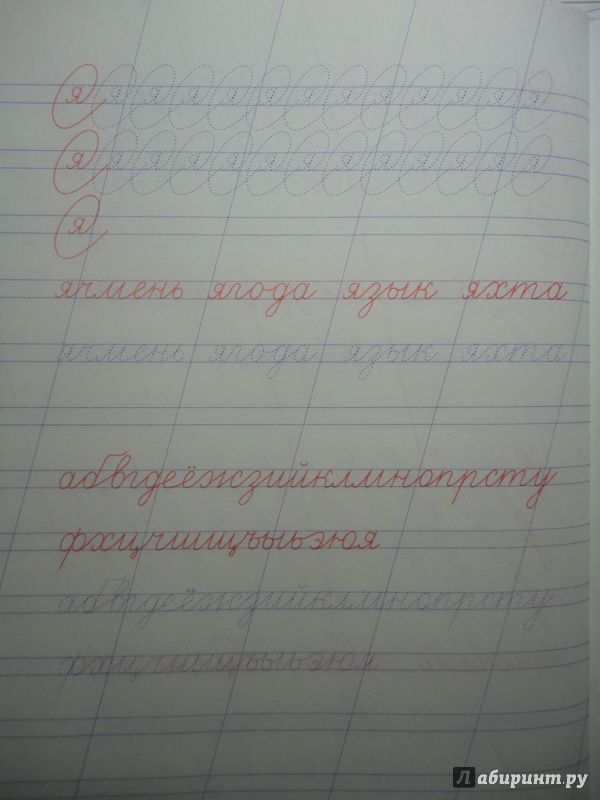 я я я я я я я я я я я я я
я я я я я я я я я я я я я
я
ячмень ягода язык яхта
ячмень ягода язык яхта
абвгдеёжзийклмнопрсту
фхцчшщъыьэюя
абвгдеёжзийклмнопрсту
фхцчшщъыьэюя
Лабиринт.ру